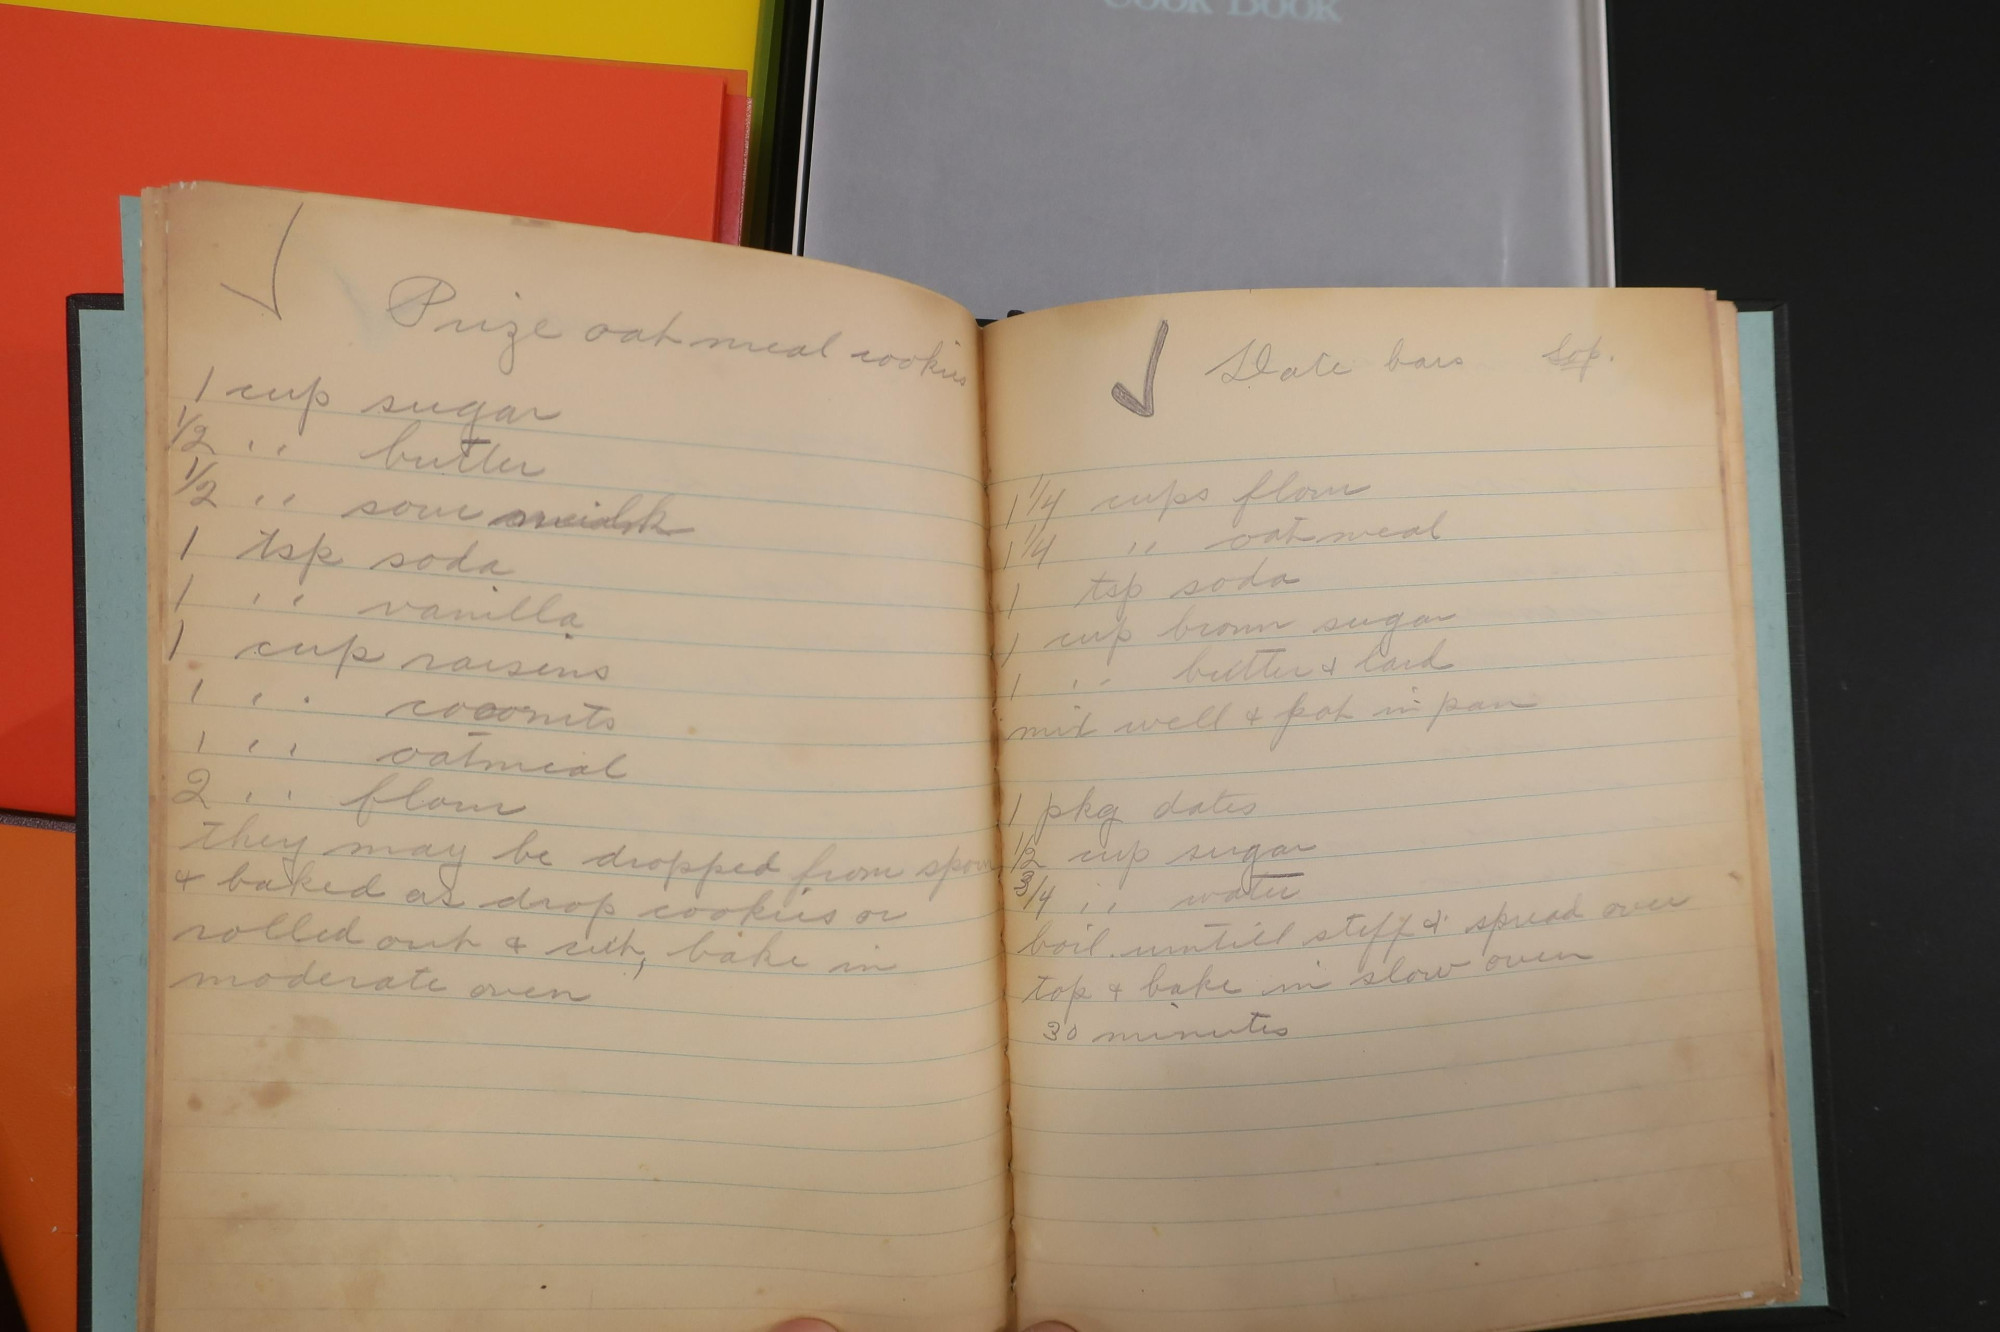 COOK BOOK
Prize oatmeal cookies
1 cup sugar
1/2 " butter
1/2 " sour milk
1 tsp soda
1 " vanilla
1 cup raisens
1 " cocoonuts
1 " oatmeal
2 " flour
they may be dropped from spoon
+ baked as drop cookies or
rolled out + cut, bake in
moderate oven
Date bars
1 1/4 cups flour
1 1/4 " oatmeal
1 tsp soda
1 cup brown sugar
1 " butter + lard
mix well + pat in pan
1 pkg dates
1/2 cup sugar
3/4 " water
boil untill stiff + spread over
top + bake in slow oven
30 minutes